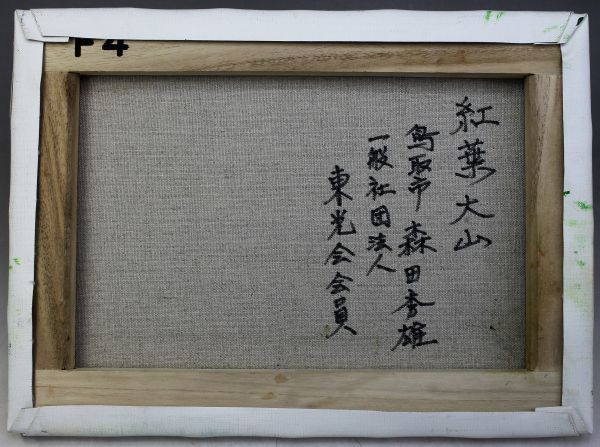 F4
紅葉大山
鳥取市 森田秀雄
一般社団法人
東光会会員